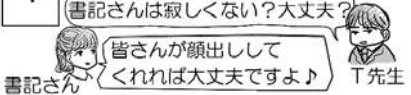 書記さんは寂しくない？大丈夫？
皆さんが顔出しして
くれれば大丈夫ですよ♪
書記さん
T先生